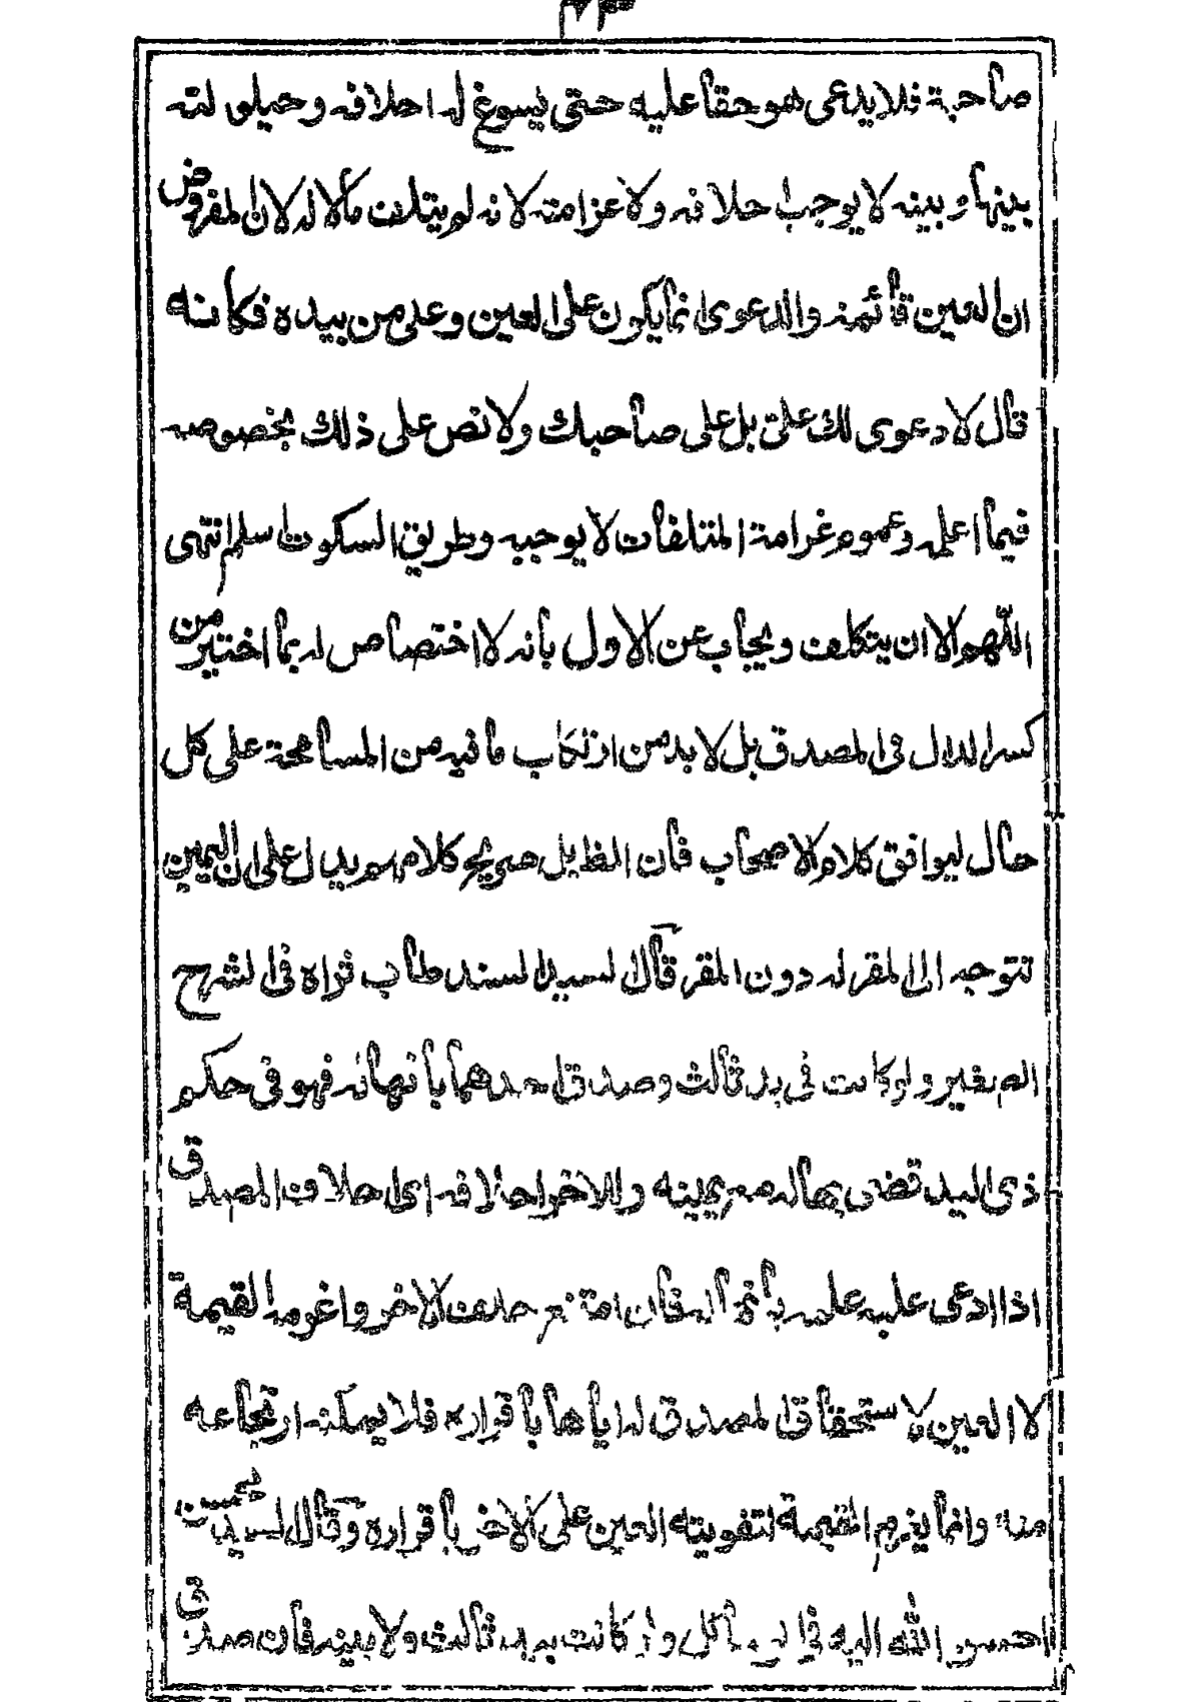 صاحبة فلا يدعى هو حقا عليه حتى يسوغ له احلافه وحيلولته
بينها وبينه لا يوجب احلافه ولا غرامته لانه لم يتلف مالا له لان المفروض
ان العين قائمة والدعوى انما يكون على العين وعلى من بيده فكانه
قال لا دعوى لك علىّ بل على صاحبك ولا نص على ذلك بخصوصه
فيما اعلم وعموم غرامة المتلفات لا يوجبه وطريق السكوت اسلم انتهى
اللّهم الا ان يتكلف ويجاب عن الاول بانه لا اختصاص له بما اختير من
كسر الدال فى المصدق بل لا بد من ارتكاب ما فيه من المسامحة على كل
حال ليوافق كلام الاصحاب فان الظ بل صريح كلامهم يدل على ان اليمين
تتوجه الى المقر له دون المقر قال السيد السند طاب ثراه فى الشرح
الصغير ولو كانت فى يد ثالث وصدق احدهما بانها له فهو فى حكم
ذى اليد قضى بها له مع يمينه وللاخر احلافه اى احلاف المصدق
اذا ادعى عليه علمه بانها له فان امتنع حلف الاخر واغرمه القيمة
لا العين لاستحقاق المصدق له اياها باقراره فلا يمكنه ارتجاعه
منه وانما يغرم القيمة لتفويته العين على الاخر باقراره وقال السيد
احسن الله اليه فى كانت بيد ثالث ولا بينه فان صدق